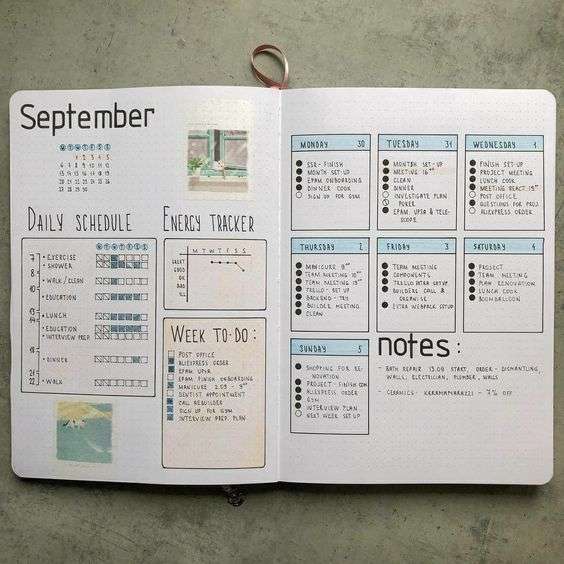 September
M T W T F S S
1 2 3 4 5
6 7 8 9 10 11 12
13 14 15 16 17 18 19
20 21 22 23 24 25 26
27 28 29 30
DAILY SCHEDULE
M T W T F S S
7 • EXERCISE
• SHOWER
8
• WALK / CLEAN
9
• EDUCATION
10
11
• LUNCH
13
14
• EDUCATION
• INTERVIEW PREP
18
19
• DINNER
21
22
• WALK
ENERGY TRACKER
M T W T F S S
GREAT
GOOD
OK
BAD
ILL
WEEK TO-DO:
POST OFFICE
ALIEXPRESS ORDER
EPAM UPSA
EPAM FINISH ONBOARDING
MANICURE 2.09 - 9
DENTIST APPOINTMENT
CALL REBUILDER
SIGN UP FOR GYM
INTERVIEW PREP. PLAN
MONDAY 30
SSR - FINISH
MONTH SET-UP
EPAM ONBOARDING
DINNER COOK
SIGN UP FOR GYM
TUESDAY 31
MONTH SET-UP
MEETING 16
CLEAN
DINNER
INVESTIGATE PLAN
POKER
EPAM, UPSA & TELE-
SCOPE
WEDNESDAY 1
FINISH SET-UP
PROJECT MEETING
LUNCH COOK
MEETING REACT 19
POST OFFICE
QUESTIONS FOR PROJ
ALIEXPRESS ORDER
THURSDAY 2
MANICURE 9
TEAM MEETING
TEAM MEETING
TRELLO - SET UP
BACKEND - TRY
BUILDER MEETING
FRIDAY 3
TEAM MEETING
COMPONENTS
TRELLO EXTRA SETUP
BUILDERS CALL &
ORGANISE
EXTRA WEBPACK SETUP
SATURDAY 4
PROJECT
TEAM MEETING
PLAN RENOVATION
LUNCH COOK
BOOMBALLOON
SUNDAY 5
SHOPPING FOR RE-
NOVATION
PROJECT - FINISH COM
ALIEXPRESS ORDER
GYM
INTERVIEW PLAN
NEXT WEEK SET UP
notes:
- BATH REPAIR 13.09 START. ORDER - DISMANTLING
WALLS, ELECTRICIAN, PLUMBER, WALLS
- CERAMICS - KERAMAMARAZZI - 7% OFF